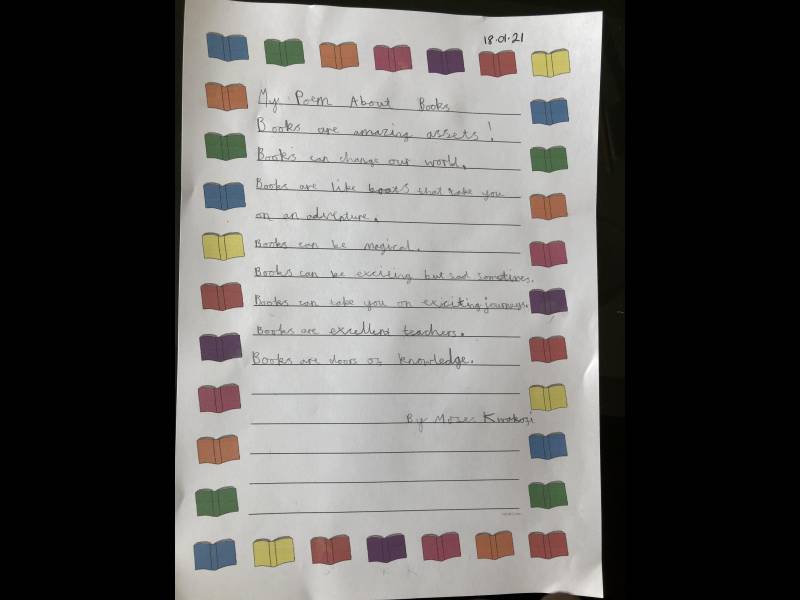 18.01.21
My Poem About Books
Books are amazing assets!
Books can change our world.
Books are like boats that take you
on an adventure.
Books can be magical.
Books can be exciting but sad sometimes.
Books can take you on exiciting journeys.
Books are excellent teachers.
Books are doors of knowledge.
By Moses